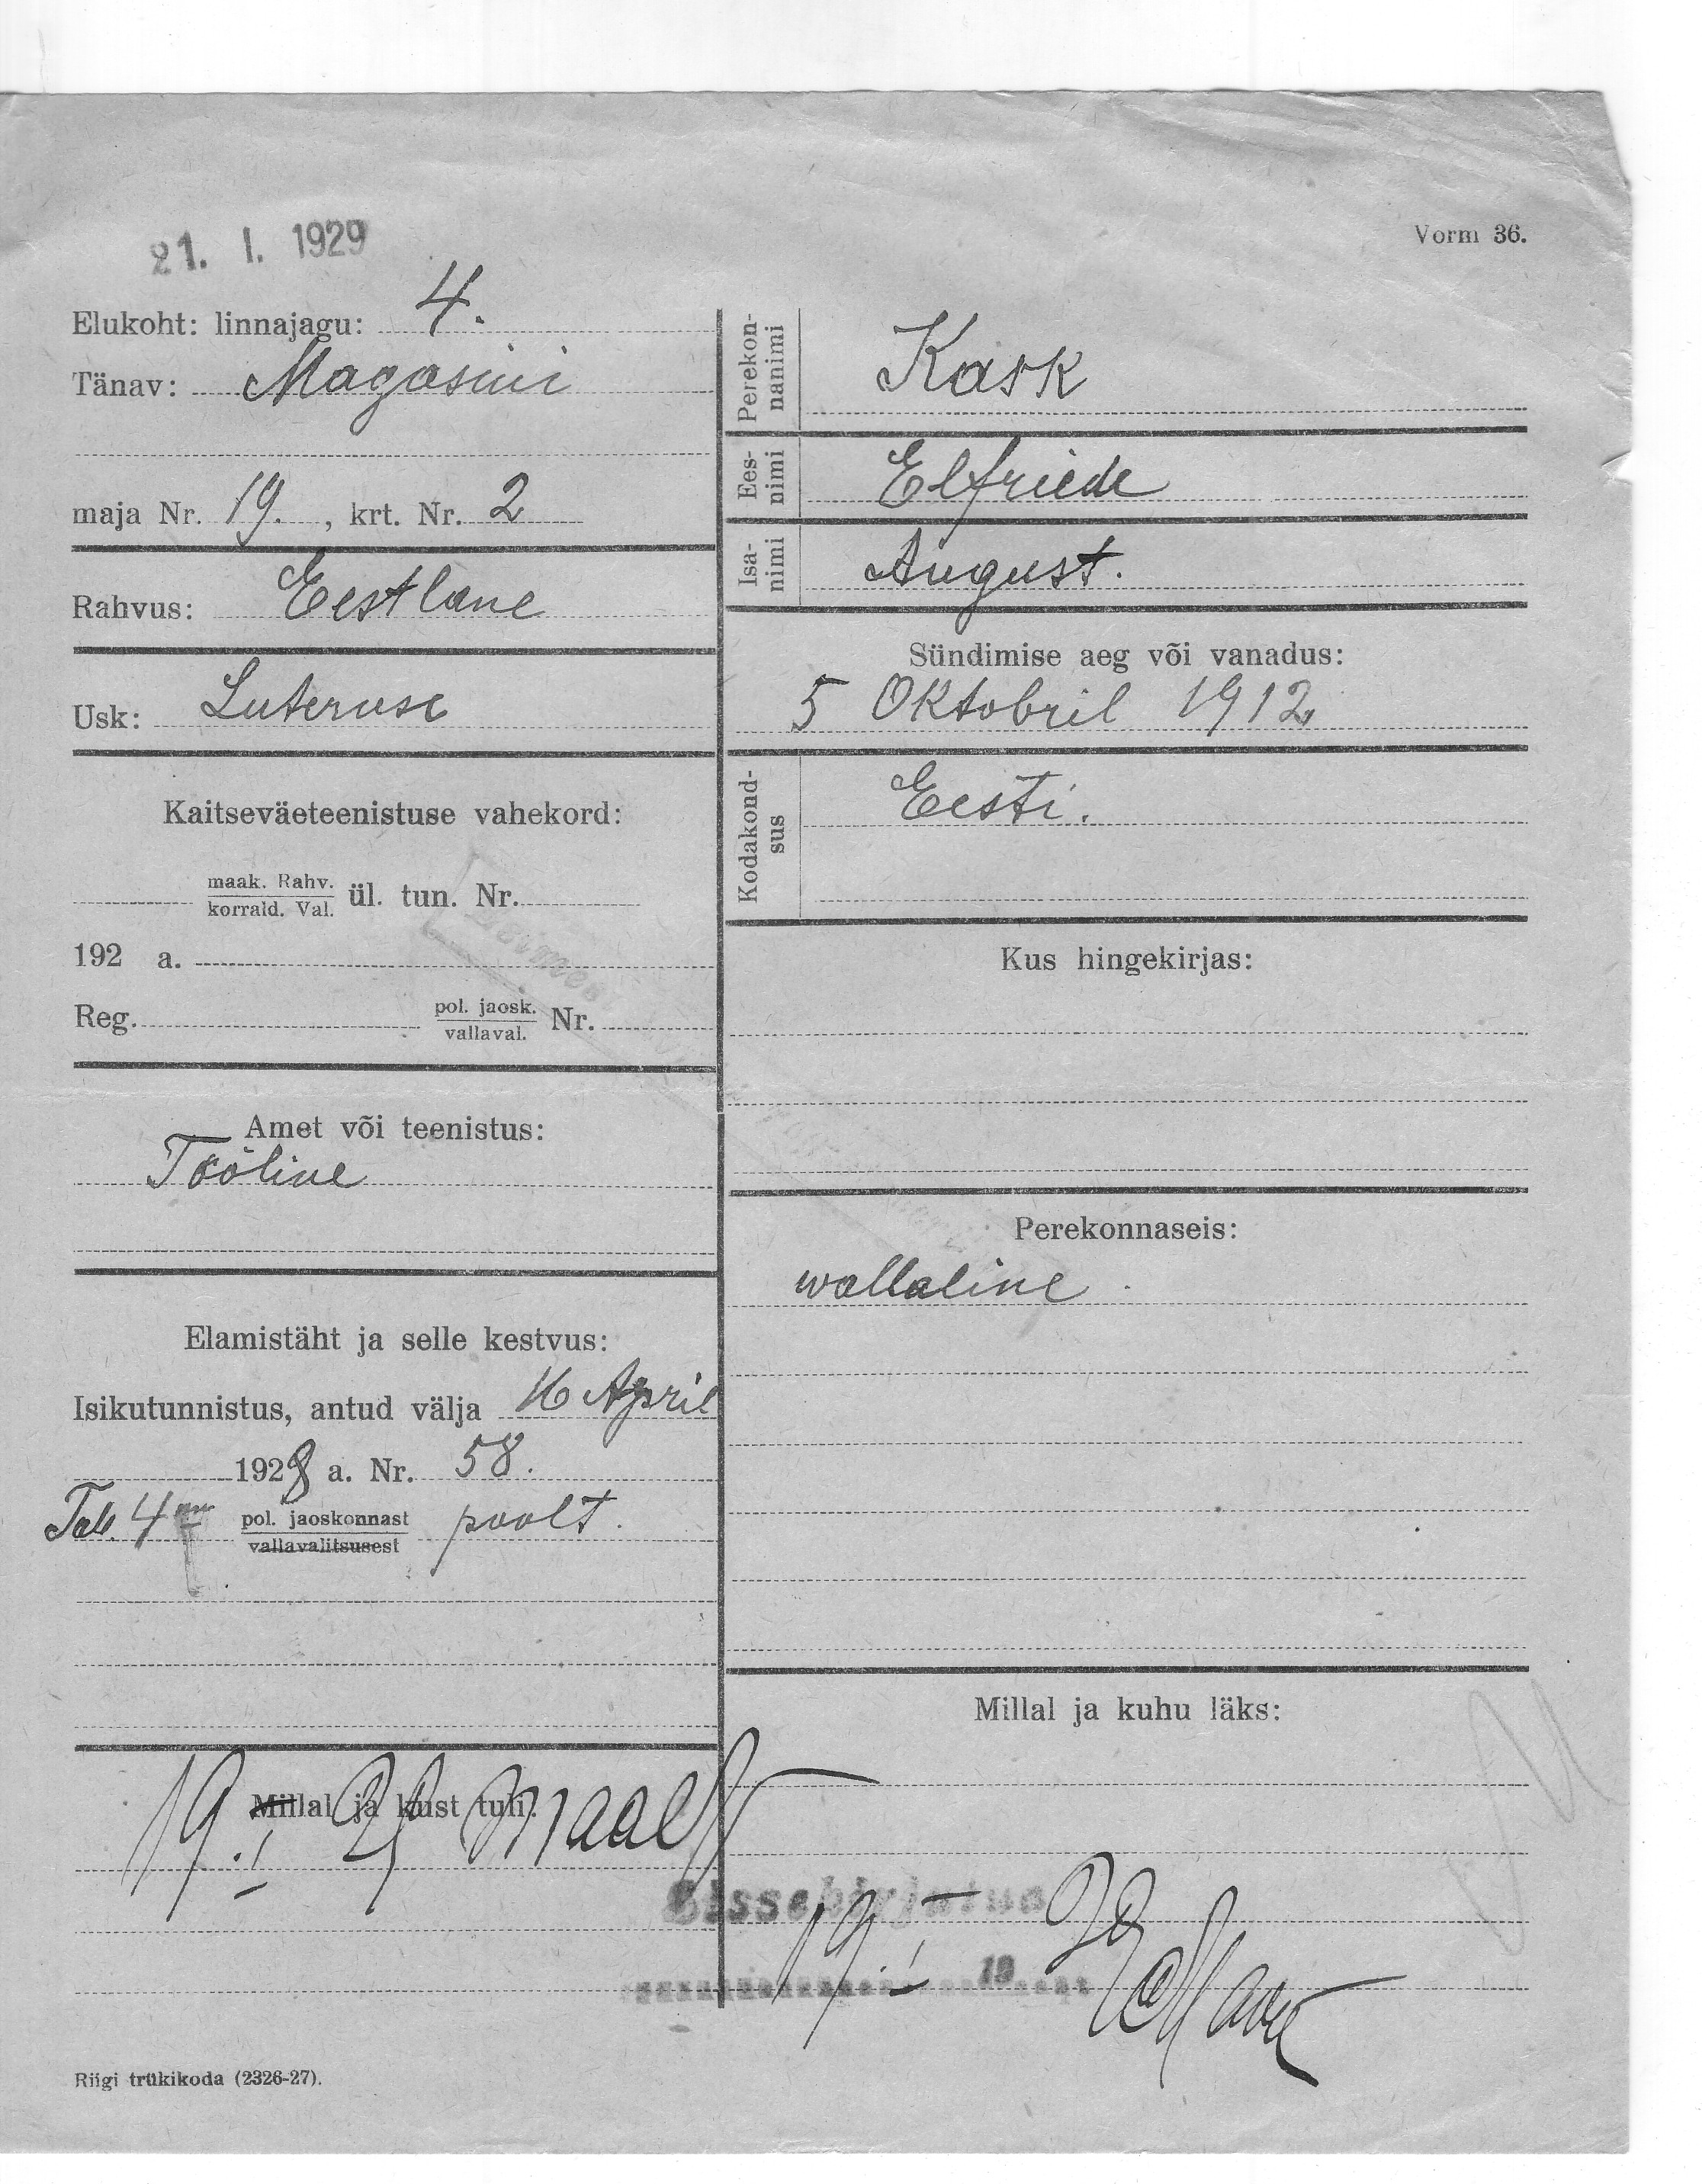 21. I. 1929
Vorm 36.
Elukoht: linnajagu: 4.
Tänav: Magasini
maja Nr. 19. , krt. Nr. 2
Rahvus: Eestlane
Usk: Luteruse
Kaitseväeteenistuse vahekord:
maak. Rahv.
korrald. Val. ül. tun. Nr.
192 a.
Reg. pol. jaosk.
vallaval. Nr.
Amet või teenistus:
Tööline
Elamistäht ja selle kestvus:
Isikutunnistus, antud välja 16 April
1928 a. Nr. 58.
Tal. 4 pol. jaoskonnast poolt.
vallavalitsusest
Millal ja kust tuli:
19. I 29 maalt
Perekon-
nanimi
Kask
Ees-
nimi
Elfriede
Isa-
nimi
August.
Sündimise aeg või vanadus:
5 Oktobril 1912
Kodakond-
sus
Eesti.
Kus hingekirjas:
Perekonnaseis:
wallaline.
Millal ja kuhu läks:
Sissekirjutus
19. I 29
19
Riigi trükikoda (2326-27).